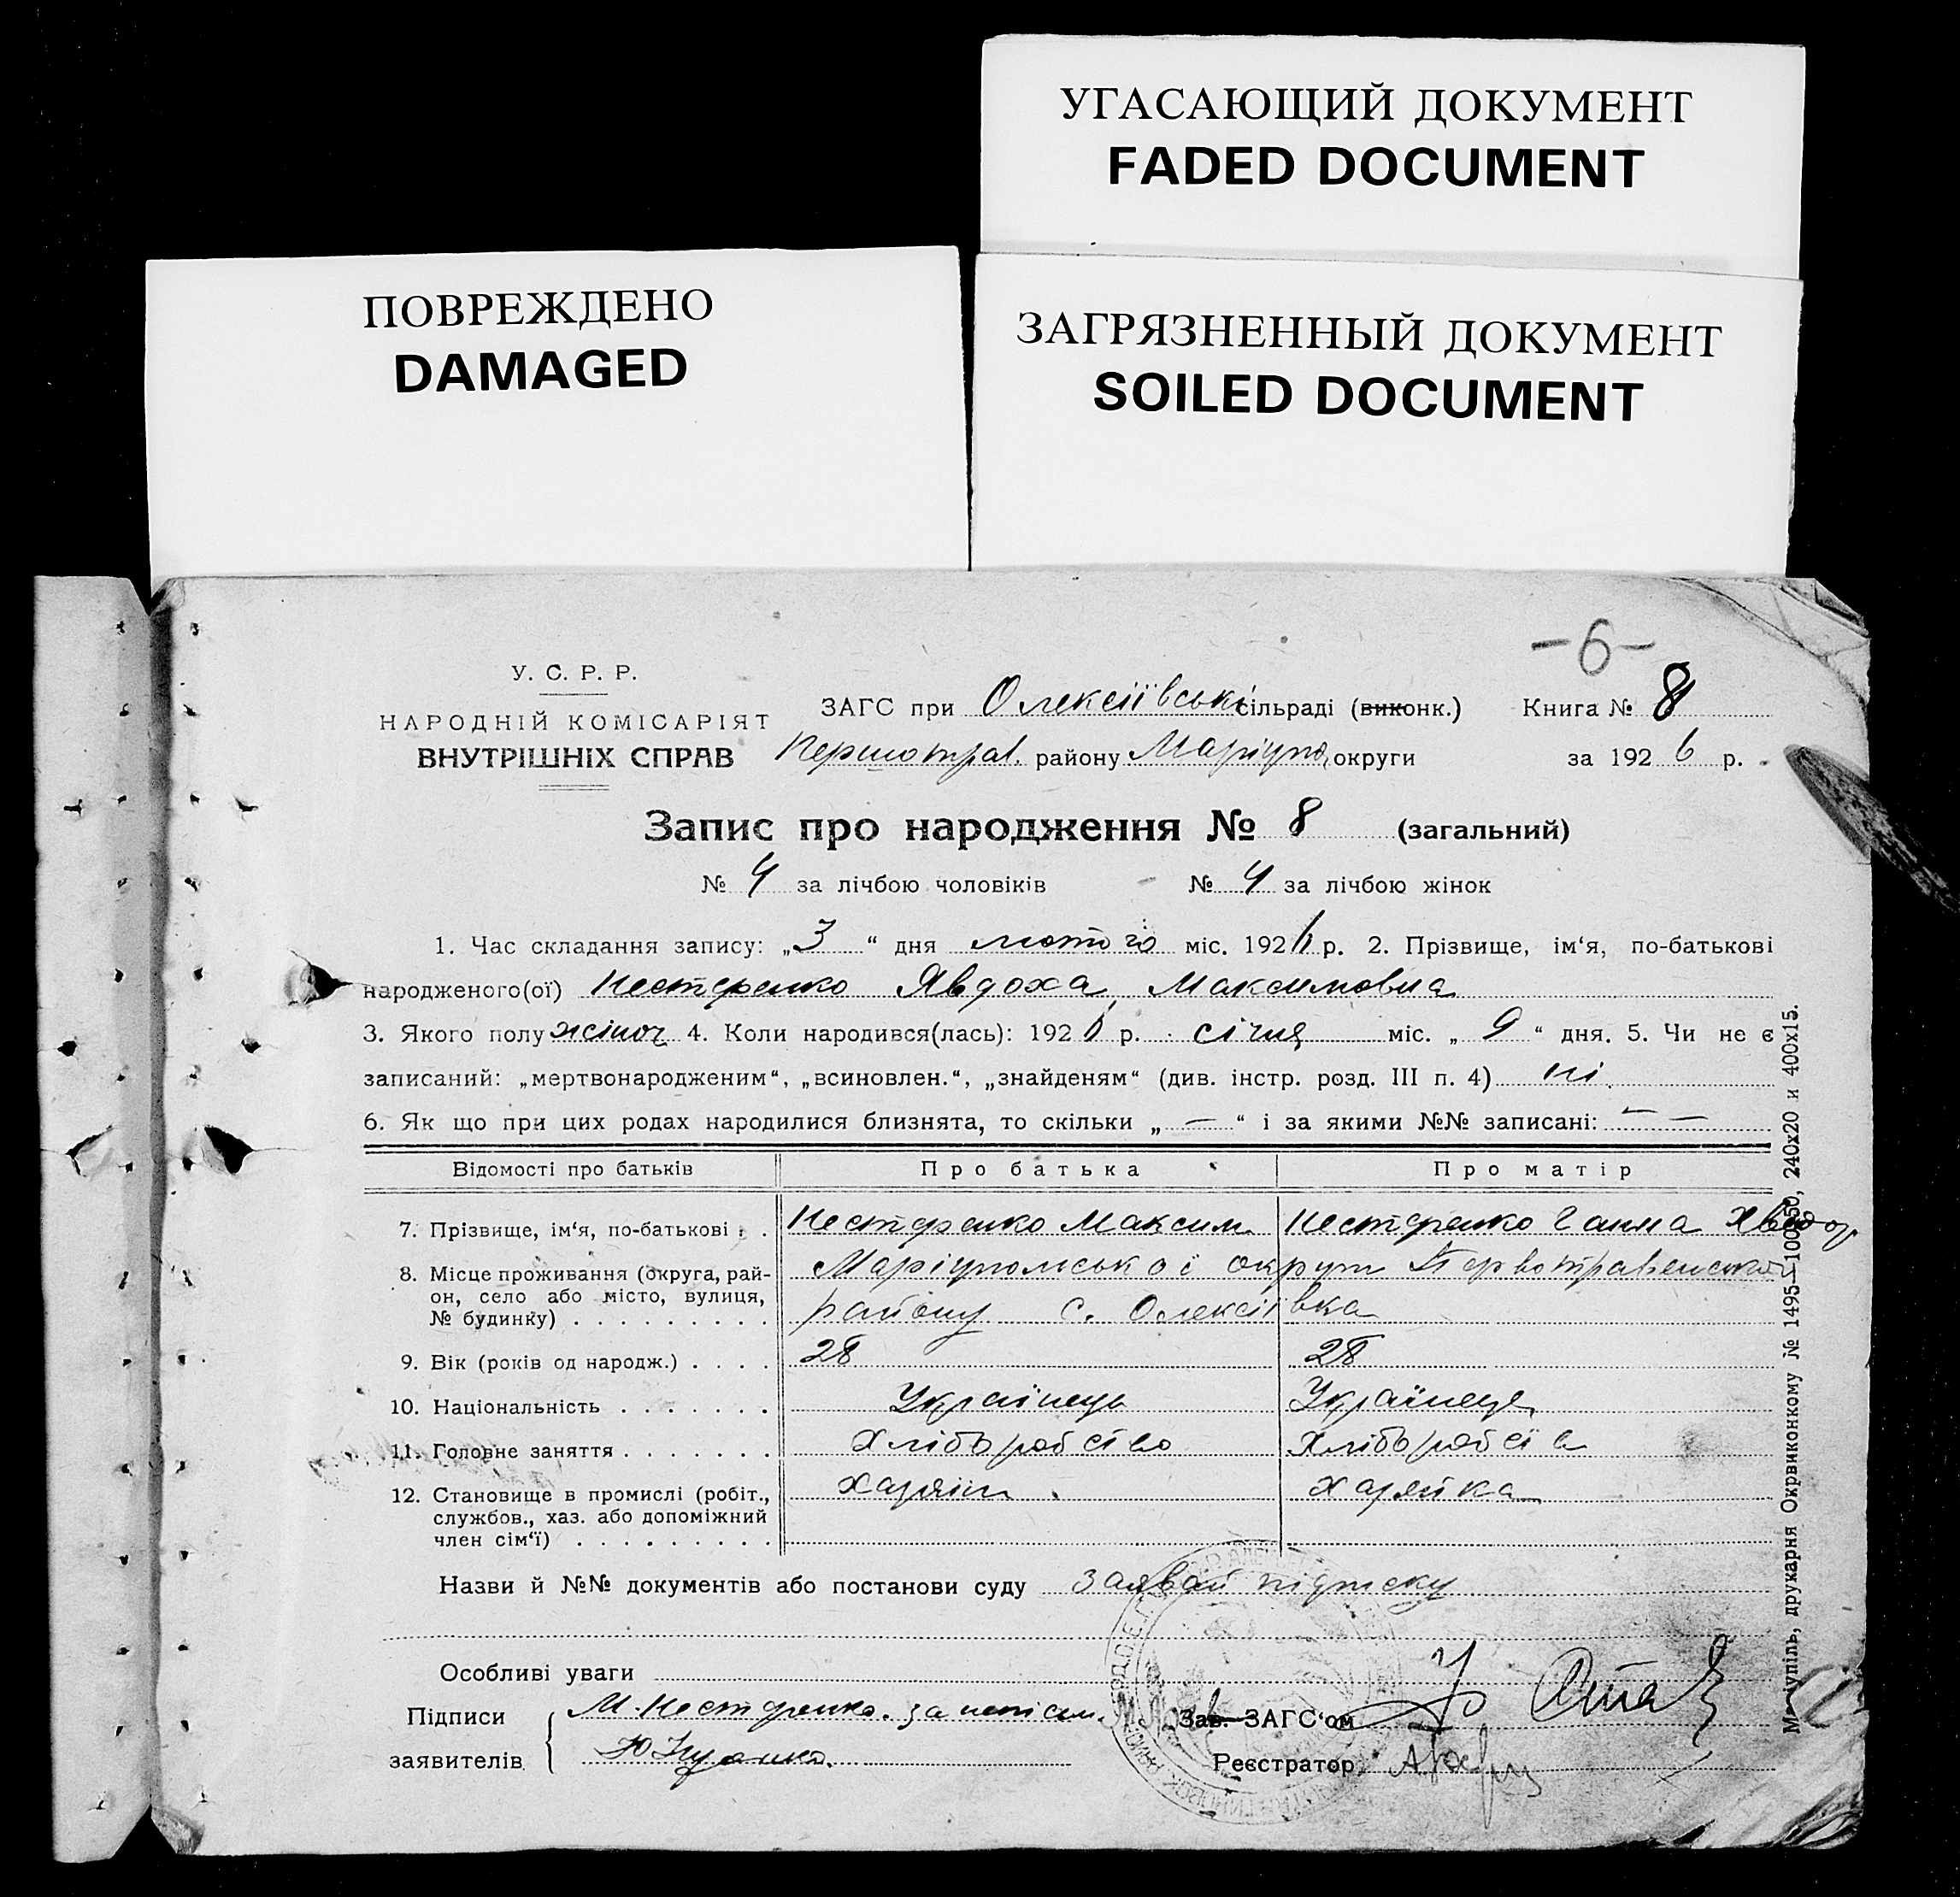 УГАСАЮЩИЙ ДОКУМЕНТ
FADED DOCUMENT
ПОВРЕЖДЕНО
DAMAGED
ЗАГРЯЗНЕННЫЙ ДОКУМЕНТ
SOILED DOCUMENT
-6-
У. С. Р. Р.
НАРОДНІЙ КОМІСАРІЯТ
ВНУТРІШНІХ СПРАВ
ЗАГС при Олексіївські сільраді (виконк.) Книга № 8
Першотрав. району Маріуп. округи за 1926 р.
Запис про народження № 8 (загальний)
№ 4 за лічбою чоловіків № 4 за лічбою жінок
1. Час складання запису: „3“ дня лютого міс. 1926 р. 2. Прізвище, ім‘я, по-батькові
народженого(ої) Нестеренко Явдоха Максимовна
3. Якого полу жіноч 4. Коли народився(лась): 1926 р. січня міс. „9“ дня. 5. Чи не є
записаний: „мертвонародженим“, „всиновлен.“, „знайденям“ (див. інстр. розд. III п. 4) ні.
6. Як що при цих родах народилися близнята, то скільки „—“ і за якими №№ записані: — —
Відомості про батьків Про батька Про матір
7. Прізвище, ім‘я, по-батькові . . Нестеренко Максим Нестеренко Ганна Хведор
8. Місце проживання (округа, рай- Маріупольської округи Первотравенського
он, село або місто, вулиця,
№ будинку) . . . . . . . . . району с. Олексіївка
9. Вік (років од народж.) . . . . 28 28
10. Національність . . . . . . . Українець Українець
11. Головне заняття . . . . . . . Хлібробство Хлібробств
12. Становище в промислі (робіт., Хазяін. Хазяйка
службов., хаз. або допоміжний
член сім‘ї) . . . . . . . . .
Назви й №№ документів або постанови суду Заяват підписку
Особливі уваги
Підписи М. Нестеренко. за непісьм. Зав. ЗАГС‘ом
заявителів Реєстратор
Маріупіль, друкарня Окрвиконкому № 1495—100х50, 240х20 и 400х15.